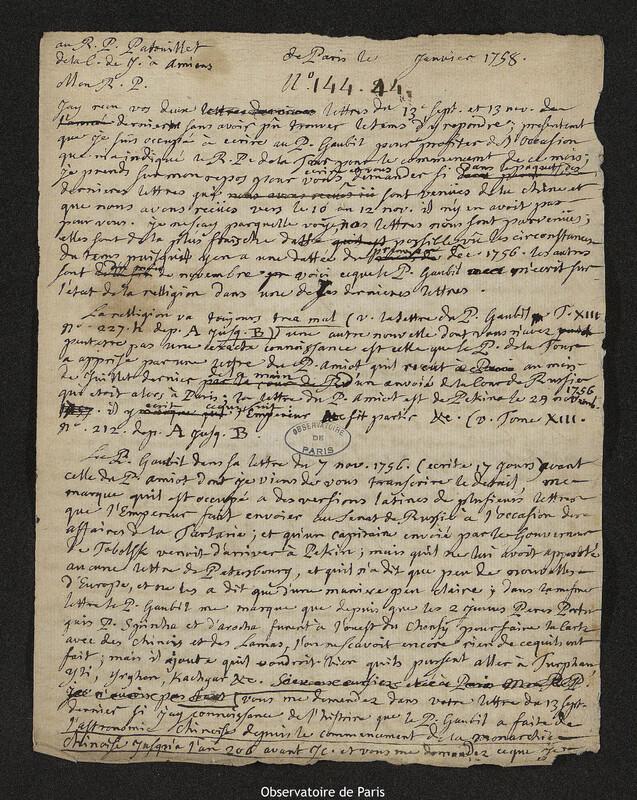 au R. P. Patouillet
de la C. de J. à Amiens
de Paris le janvier 1758.
Mon R. P.
N.° 144. 44
J'ay recu vos deux lettres du 13 sept. et 13 nov. de
dernier sans avoir pu trouver le tems d'y repondre; presentement
que je suis occupé a ecrire au P. Gaubil pour profiter de l'occasion
que m'a indiqué le R. P. de la Tour pour le commencement de ce mois;
je prends sur mon repos pour vous demander si
dernieres lettres qui sont venues de la chine et
que nous avons recües vers le 10 ou 12 nov. il n'y en avoit pas
pour vous. Je ne scay par quelle voye nos lettres nous sont parvenües;
elles sont de la plus fraiche datte possible vu les circonstances
du tems puisqu'il y en a une dattée de dec 1756. les autres
sont de novembre voici ce que le P. Gaubil m'ecrit sur
l'etat de la relligion dans une de ses dernieres lettres.
La relligion va toujours tres mal (v. la lettre du P. Gaubil T. XIII
n.° 227. h. dep. A jusq. B) une autre nouvelle dont vous n'avez
peut etre pas une exacte connoissance est celle que le P. de la Tour
a apprise par une lettre du P. Amiot qu'il recut au mois
de Juillet dernier par la main d'un envoié de la cour de Russie
qui etoit alors à Paris; la lettre du P. Amiot est de Pekin le 24 novemb. 1756
il y Empereur fit partir &c. (v. Tome XIII.
n.° 212. dep. A jusq. B.
OBSERVATOIRE DE PARIS
Le P. Gaubil dans sa lettre du 7 nov. 1756. (ecrite 17 jours) avant
celle du P. Amiot dont je viens de vous transcrire le detail, me
marque qu'il est occupé a des versions latines de plusieurs lettres
que l'Empereur fait envoier au Senat de Russie à l'occasion des
affaires de la Tartarie; et qu'un capitaine envoié par le Gouverneur
de Tobolsk venoit d'arriver à Pekin; mais qu'il ne lui avoit apporté
aucune lettre de Petersbourg, et qu'il n'a dit que peu de nouvelles
d'Europe, et ne les a dit que d'une maniere peu claire; dans la même
lettre le P. Gaubil me marque que depuis que les 2 jeunes Peres Portu-
guais P. Espinha et d'arocha furent à l'ouest du Chensy pour faire la carte
avec des chinois et des Lamas, l'on ne scavoit encore rien de ce qu'ils ont
fait; mais il ajoute qu'il voudroit bien qu'ils pussent aller à Turphan
Yli, Yrghen, Kachgar &c.
vous me demandez dans votre lettre du 13 sept.
dernier si j'ay connoissance de l'histoire que le P. Gaubil a faite de
l'astronomie chinoise depuis le commencement de la monarchie
chinoise jusqu'a l'an 206 avant J.C. et vous me demandez ce que j'en
Observatoire de Paris